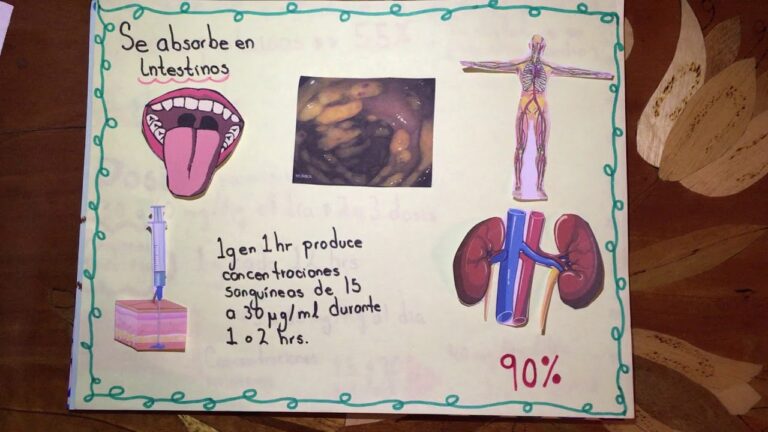 Se absorbe en
Intestinos
1g en 1 hr produce
concentraciones
sanguíneas de 15
a 30 µg/ml durante
1 o 2 hrs.
90%